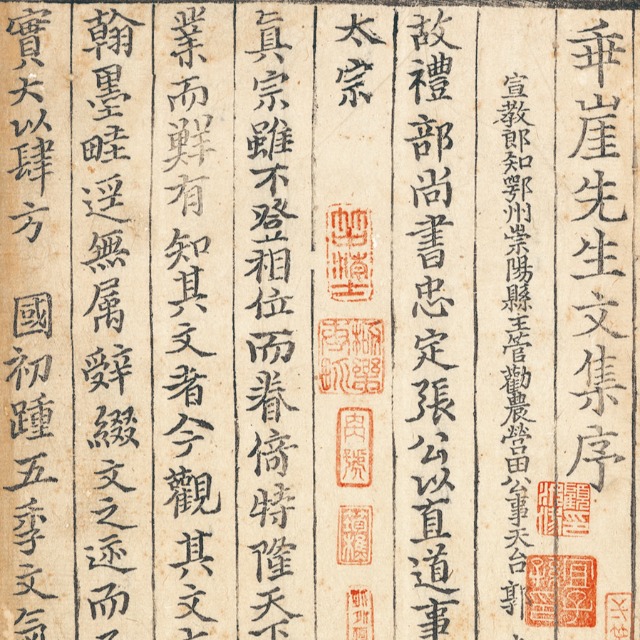 乖崖先生文集序
宣教郎知鄂州崇陽縣主管勸農營田公事天台郭
故禮部尚書忠定張公以直道事
太宗
真宗雖不登相位而眷倚特隆天下
業而鮮有知其文者今觀其文
翰墨畦逕無屬辭綴文之迹而
實大以肆方 國初踵五季文氣